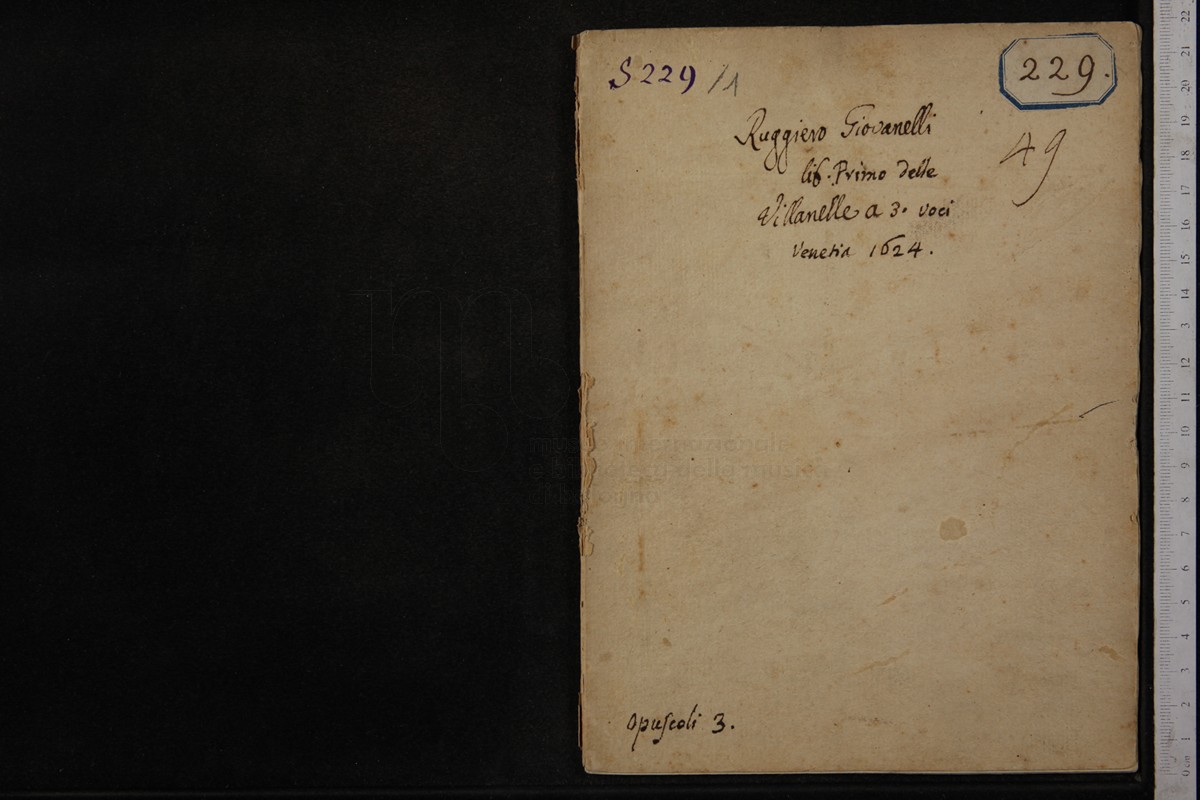 S 229 /1
229.
49
Ruggiero Giovanelli
lib. Primo delle
Villanelle a 3. voci
Venetia 1624.
museo internazionale
e biblioteca della musica
di bologna
opuscoli 3.
22
21
20
19
18
17
16
15
14
3
12
11
10
9
8
7
6
5
4
3
2
1
0 cm